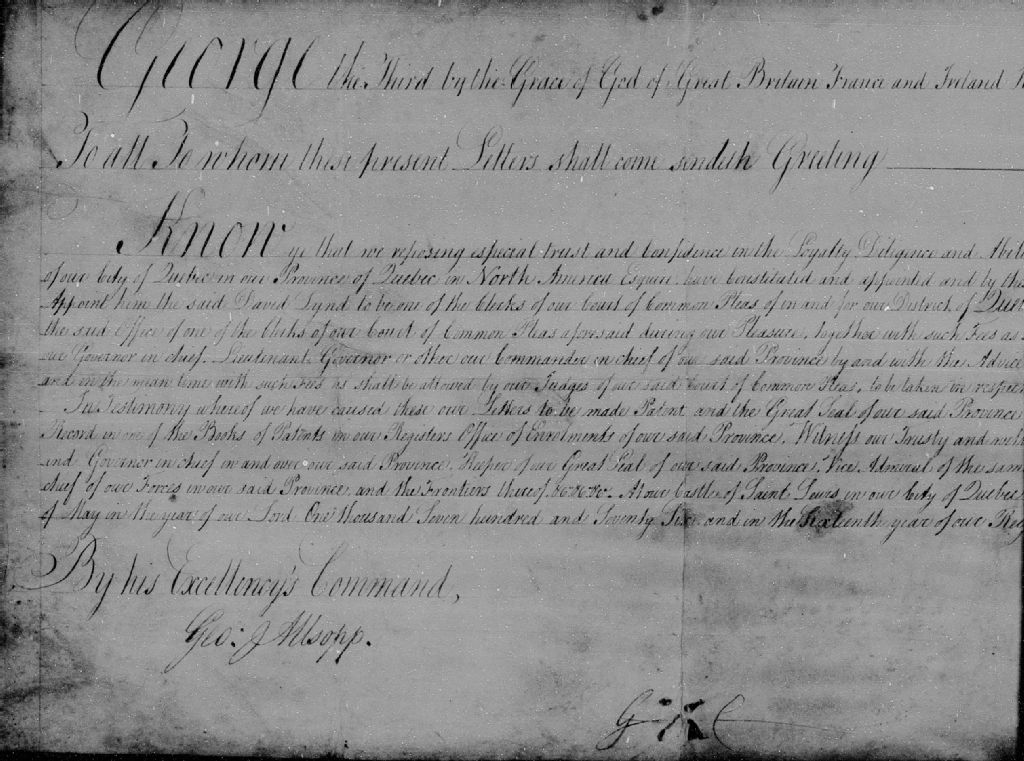 George the Third by the Grace of God of Great Britain France and Ireland
To all To whom these present Letters shall come sendeth Greeting
Know ye that we reposing especial trust and Confidence in the Loyalty Diligence and
of our City of Quebec in our Province of Quebec in North America Esquire have constituted and appointed and by these
Appoint him the said David Lynd to be one of the Clerks of our Court of Common Pleas of in and for our District of
the said Office of one of the Clerks of our Court of Common Pleas aforesaid during our Pleasure, together with such Fees as
our Governor in chief, Lieutenant Governor or other our Commander in chief of our said Province by and with the Advice
and in the mean time with such Fees as shall be allowed by our Judges of our said Court of Common Pleas, to be taken
In Testimony whereof we have caused these our Letters to be made Patent and the Great Seal of our said Province
Record in one of the Books of Patents in our Registers Office of Enrolments of our said Province. Witness our Trusty and
and Governor in chief in and over our said Province, Keeper of our Great Seal of our said Province, Vice Admiral of the same
chief of our Forces in our said Province, and the Frontiers thereof &c. &c. &c. At our Castle of Saint Lewis, in our City of Quebec
of May in the year of our Lord One thousand Seven hundred and Seventy Six and in the Sixteenth year of our
By his Excellency's Command,
Geo: J Allsopp.